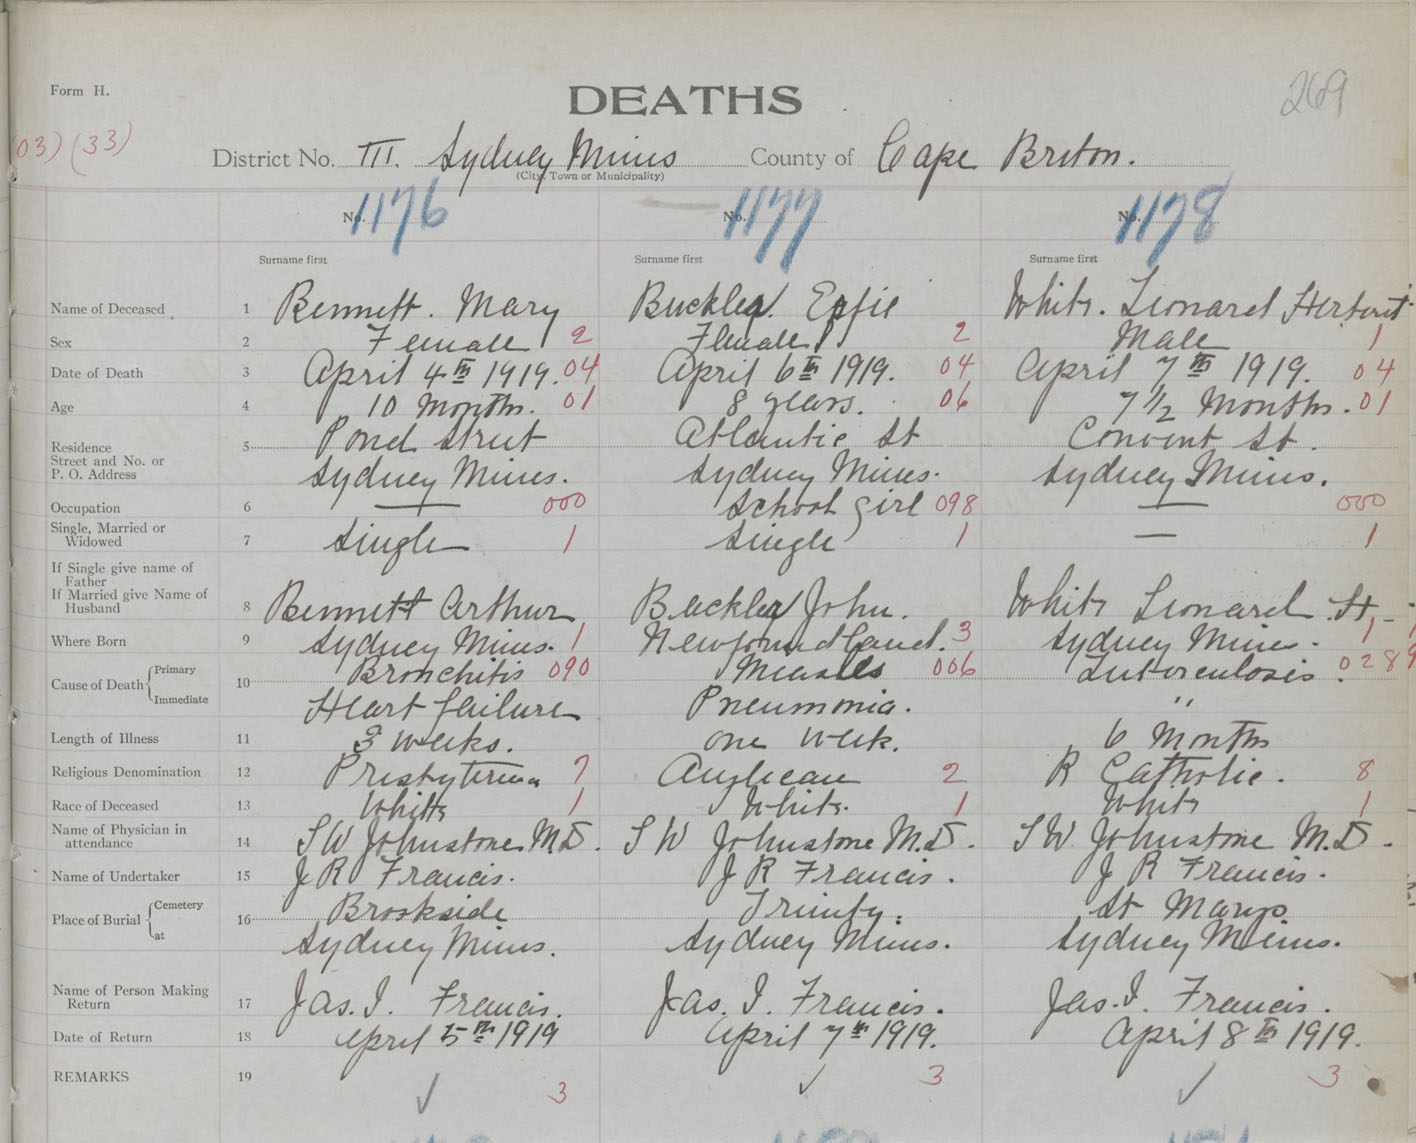 Form H.
DEATHS
269
(03) (33)
District No. III. Sydney Mines County of Cape Breton.
(City, Town or Municipality)
No. 1176 No. 1177 No. 1178
Surname first Surname first Surname first
Name of Deceased 1 Bennett. Mary Buckley. Effie White. Leonard Herbert
Sex 2 Female 2 Female 2 Male 1
Date of Death 3 April 4th 1919. 04 April 6th 1919. 04 April 7th 1919. 04
Age 4 10 Months. 01 8 years. 06 7 1/2 Months. 01
Residence 5 Pond Street Atlantic St Convent St.
Street and No. or
P. O. Address Sydney Mines. Sydney Mines. Sydney Mines.
Occupation 6 — 000 School Girl 098 — 000
Single, Married or
Widowed 7 Single 1 Single 1 — 1
If Single give name of
Father
If Married give Name of
Husband 8 Bennett Arthur Buckley John. White Leonard St.
Where Born 9 Sydney Mines. 1 Newfoundland. 3 Sydney Mines. 1
Cause of Death Primary 10 Bronchitis 090 Measles 006 Tuberculosis. 0289
Immediate Heart failure Pneumonia. "
Length of Illness 11 3 weeks. one week. 6 Months
Religious Denomination 12 Presbyterian 7 Anglican 2 R Catholic. 8
Race of Deceased 13 White 1 White. 1 White 1
Name of Physician in
attendance 14 S W Johnstone M.D. S W Johnstone M.D. S W Johnstone M.D.
Name of Undertaker 15 J R Francis. J R Francis. J R Francis.
Place of Burial Cemetery 16 Brookside Trinity. St Marys.
at Sydney Mines. Sydney Mines. Sydney Mines.
Name of Person Making
Return 17 Jas. I. Francis. Jas. I. Francis. Jas. I. Francis.
Date of Return 18 April 5th 1919 April 7th 1919. April 8th 1919.
REMARKS 19 ✓ 3 ✓ 3 ✓ 3